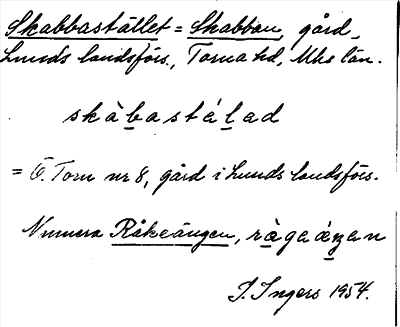 Skabbastället = Skabban, gård,
Lunds landsförs., Torna hd, Mhs län.
skàbastálad
= Ö. Torn nr 8, gård i Lunds landsförs.
Numera Råkeängen, ràgaáŋan
I. Ingers 1954.